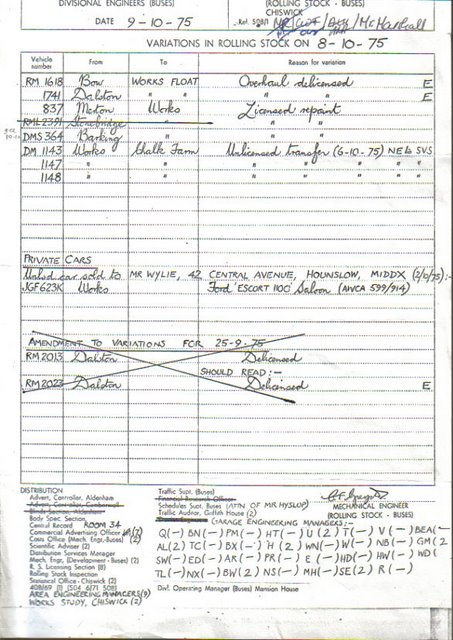 DIVISIONAL ENGINEERS (BUSES)
(ROLLING STOCK - BUSES)
CHISWICK
DATE 9-10-75
Ref. 508/1
Mc Marshall
VARIATIONS IN ROLLING STOCK ON 8-10-75
Vehicle number From To Reason for variation
RM 1618 Bow WORKS FLOAT Overhaul delicensed E
1741 Dalston " " " " E
837 Merton Works Licensed repaint
RML 2391 Stonebridge " " "
DMS 364 Barking " " "
DM 1143 Works Chalk Farm Unlicensed transfer (6-10-75) NEW SVS
1147 " " " " " " "
1148 " " " " " " "
PRIVATE CARS
Unlsd car sold to MR WYLIE, 42 CENTRAL AVENUE, HOUNSLOW, MIDDX (2/10/75):-
JGF 623K Works Ford 'ESCORT 1100' Saloon (AWCA 599/914)
AMENDMENT TO VARIATIONS FOR 25-9-75
RM 2013 Dalston Delicensed
SHOULD READ:-
RM 2023 Dalston Delicensed E
DISTRIBUTION
Advert. Controller, Aldenham
Body Spec. Section
Central Record ROOM 34
Commercial Advertising Officer
Cars Office (Mech. Engr.-Buses) (2)
Scientific Adviser (2)
Distribution Services Manager
Mech. Engr. (Development - Buses) (2)
R. S. Licensing Section (8)
Rolling Stock Inspection
Statistical Office - Chiswick (2)
AREA ENGINEERING MANAGERS (9)
WORKS STUDY, CHISWICK (2)
Traffic Supt. (Buses)
Financial Research Officer
Schedules Supt. (Buses) (ATTN OF MR HYSLOP)
Traffic Auditor, Griffith House (2)
GARAGE ENGINEERING MANAGERS:-
Q(-) BN(-) PM(-) HT(-) U(2) T(-) V(-) BEA(-
AL(2) TC(-) BX(-) H(2) WN(-) W(-) NB(-) GM(2
SW(-) ED(-) AK(-) PR(-) E(-) HD(-) HW(-) WD(
TL(-) NX(-) BW(2) NS(-) MH(-) SE(2) R(-)
Divl. Operating Manager (Buses) Mansion House
MECHANICAL ENGINEER
(ROLLING STOCK - BUSES)